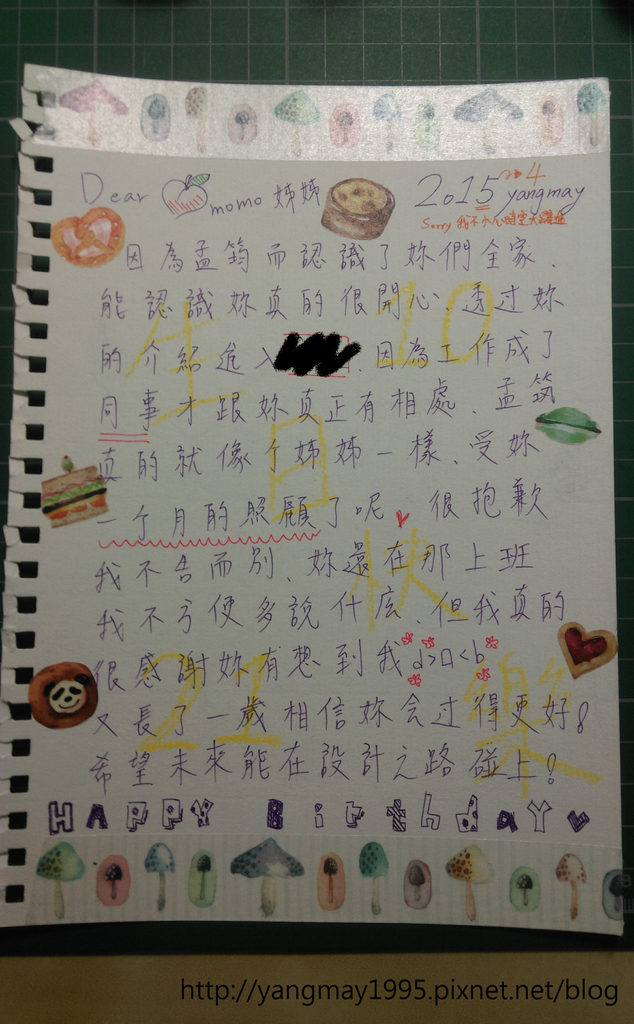 Dear momo 姊姊
2015 →4 yangmay
Sorry 我不小心時空大躍進
因為孟筠而認識了妳們全家、
能認識妳真的很開心、透过妳
的介紹進入 、因為工作成了
同事才跟妳真正有相處、孟筑
真的就像个姊姊一樣、受妳
一个月的照顧了呢 很抱歉
我不告而別、妳還在那上班
我不亏便多說什庅、但我真的
很感謝妳有想到我 d>□<b
又長了一歲相信妳会过得更好!
希望未來能在設計之路碰上!
生日快樂
10 21
HAPPY Birthday
http://yangmay1995.pixnet.net/blog